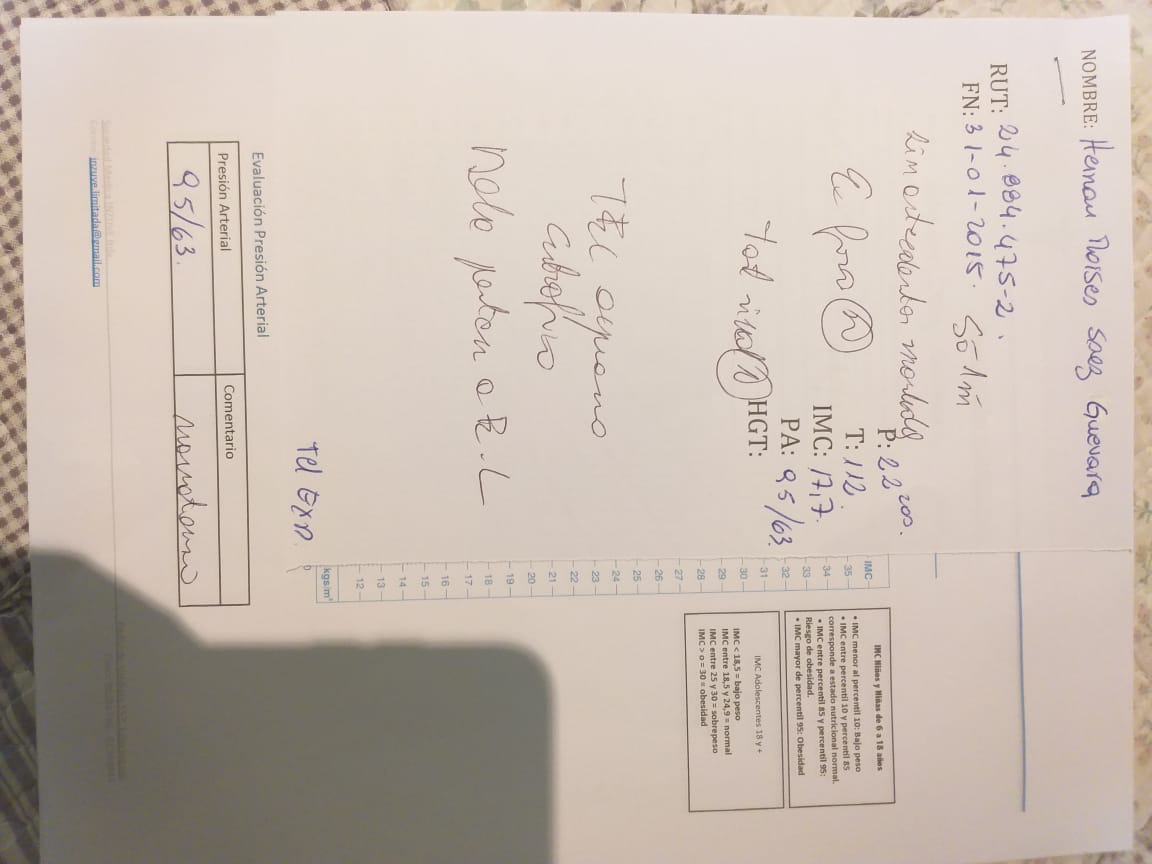 NOMBRE: Hernan Moises Saez Guevara
RUT: 24.884.475-2.
FN: 31-01-2015. 5ā 1m̄
Sin antecedentes morbidos
P: 22 200.
Ex fisico (N)
T: 112.
IMC: 17,7.
PA: 95/63.
HGT:
IMC
35
34
33
32
31
30
29
28
27
26
25
24
23
22
21
20
19
18
17
16
15
14
13
12
kgs/m²
IMC Niños y Niñas de 6 a 18 años
• IMC menor al percentil 10: Bajo peso
• IMC entre percentil 10 y percentil 85
corresponde a estado nutricional normal.
• IMC entre percentil 85 y percentil 95:
Riesgo de obesidad.
• IMC mayor de percentil 95: Obesidad
IMC Adolescentes 18 y +
IMC < 18,5 = bajo peso
IMC entre 18,5 y 24,9 = normal
IMC entre 25 y 30 = sobrepeso
IMC > o = 30 = obesidad
Tel EXP.
Evaluación Presión Arterial
Presión Arterial
Comentario
95/63.
normotenso
Sociedad Medica INZUVE ltda.
inzuve.limitada@gmail.com